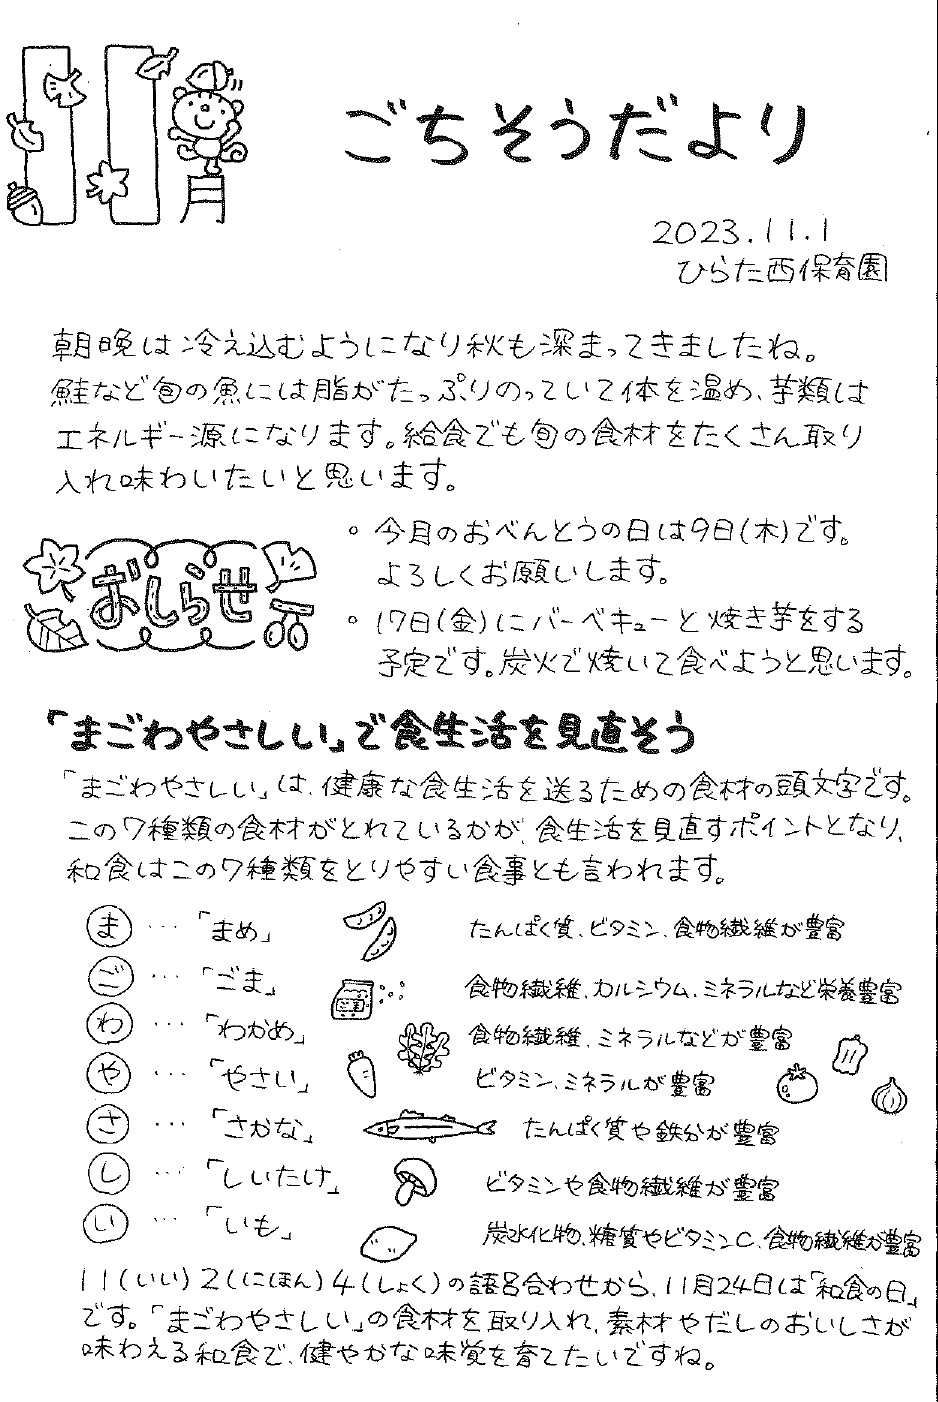 11月
ごちそうだより
2023.11.1
ひらた西保育園
朝晩は冷え込むようになり秋も深まってきましたね。
鮭など旬の魚には脂がたっぷりのっていて体を温め、芋類は
エネルギー源になります。給食でも旬の食材をたくさん取り
入れ味わいたいと思います。
おしらせ
。今月のおべんとうの日は9日(木)です。
よろしくお願いします。
。17日(金)にバーベキューと焼き芋をする
予定です。炭火で焼いて食べようと思います。
「まごわやさしい」で食生活を見直そう
「まごわやさしい」は、健康な食生活を送るための食材の頭文字です。
この7種類の食材がとれているかが、食生活を見直すポイントとなり、
和食はこの7種類をとりやすい食事とも言われます。
ま … 「まめ」 たんぱく質、ビタミン、食物繊維が豊富
ご … 「ごま」 食物繊維、カルシウム、ミネラルなど栄養豊富
わ … 「わかめ」 食物繊維、ミネラルなどが豊富
や … 「やさい」 ビタミン、ミネラルが豊富
さ … 「さかな」 たんぱく質や鉄分が豊富
し … 「しいたけ」 ビタミンや食物繊維が豊富
い … 「いも」 炭水化物、糖質やビタミンC、食物繊維が豊富
11(いい)2(にほん)4(しょく)の語呂合わせから、11月24日は「和食の日」
です。「まごわやさしい」の食材を取り入れ、素材やだしのおいしさが
味わえる和食で、健やかな味覚を育てたいですね。